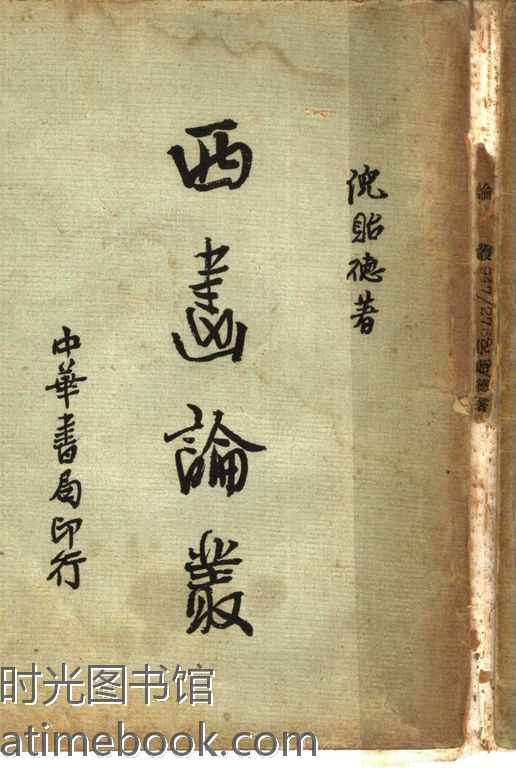 倪貽德著
西畫論叢
中華書局印行
論叢
倪貽德著
时光图书馆
atimebook.com